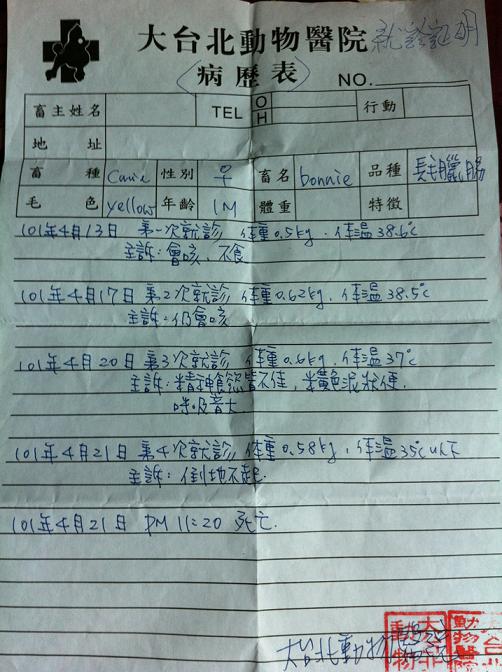 大台北動物醫院 就診証明
(病歷表) NO.
畜主姓名 TEL O H 行動
地址
畜種 Canie 性別 ♀ 畜名 bonnie 品種 長毛臘腸
毛色 yellow 年齡 1M 體重 特徵
101年4月13日 第一次就診, 体重0.5kg, 体温38.6℃
主訴:會咳, 不食
101年4月17日 第2次就診, 体重0.62kg, 体温38.5℃
主訴:仍會咳
101年4月20日 第3次就診, 体重0.6kg, 体温37℃
主訴:精神食慾皆不佳, 黃色泥狀便,
呼吸音大
101年4月21日 第4次就診, 体重0.58kg, 体温35℃以下
主訴:倒地不起.
101年4月21日 PM 11:20 死亡.
大台北動物